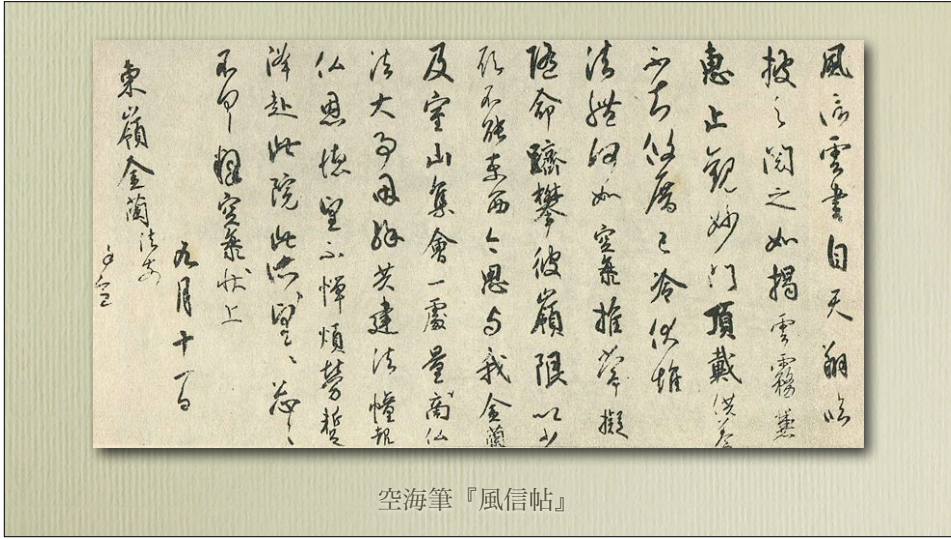 風信雲書自天翔臨
披之閲之如掲雲霧兼
惠止觀妙門頂戴供養
不知攸厝已冷伏惟
法體何如空海推常擬
隨命躋攀彼嶺限以少
願不能東西今思与我金蘭
及室山集會一處量商仏
法大事因縁共建法幢報
仏恩徳望不憚煩勞蹔
降赴此院此所望〻忩〻
不具釋空海状上
九月十一日
東嶺金蘭法前
謹空
空海筆『風信帖』